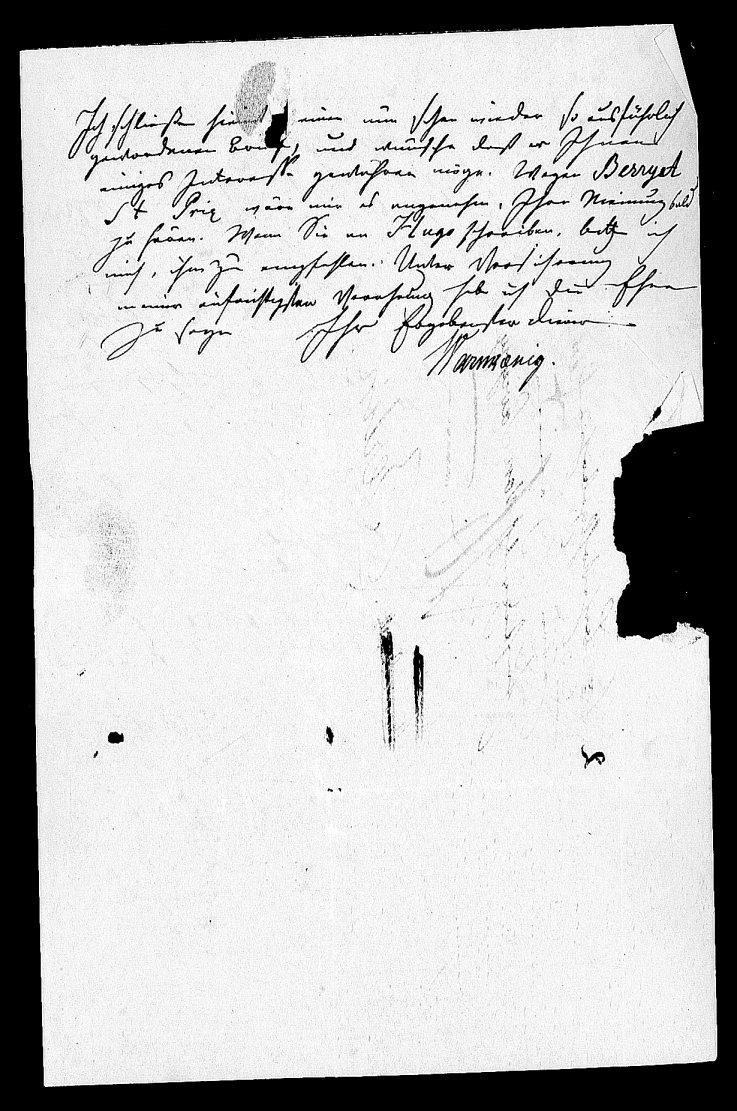 Ich schließe hiemit einen nun schon wieder so ausführlich
gewordenen Brief, und wünsche daß er Ihnen
einiges Interesse gewähren möge. Wegen Berryat
St Prix wäre mir es angenehm, Ihre Meinung bald
zu hören. Wenn Sie an Hugo schreiben, bitte ich
mich, ihm zu empfehlen. Unter Versicherung
meiner aufrichtigsten Verehrung habe ich die Ehre
zu seyn Ihr Ergebenster Diener
Warnkoenig.